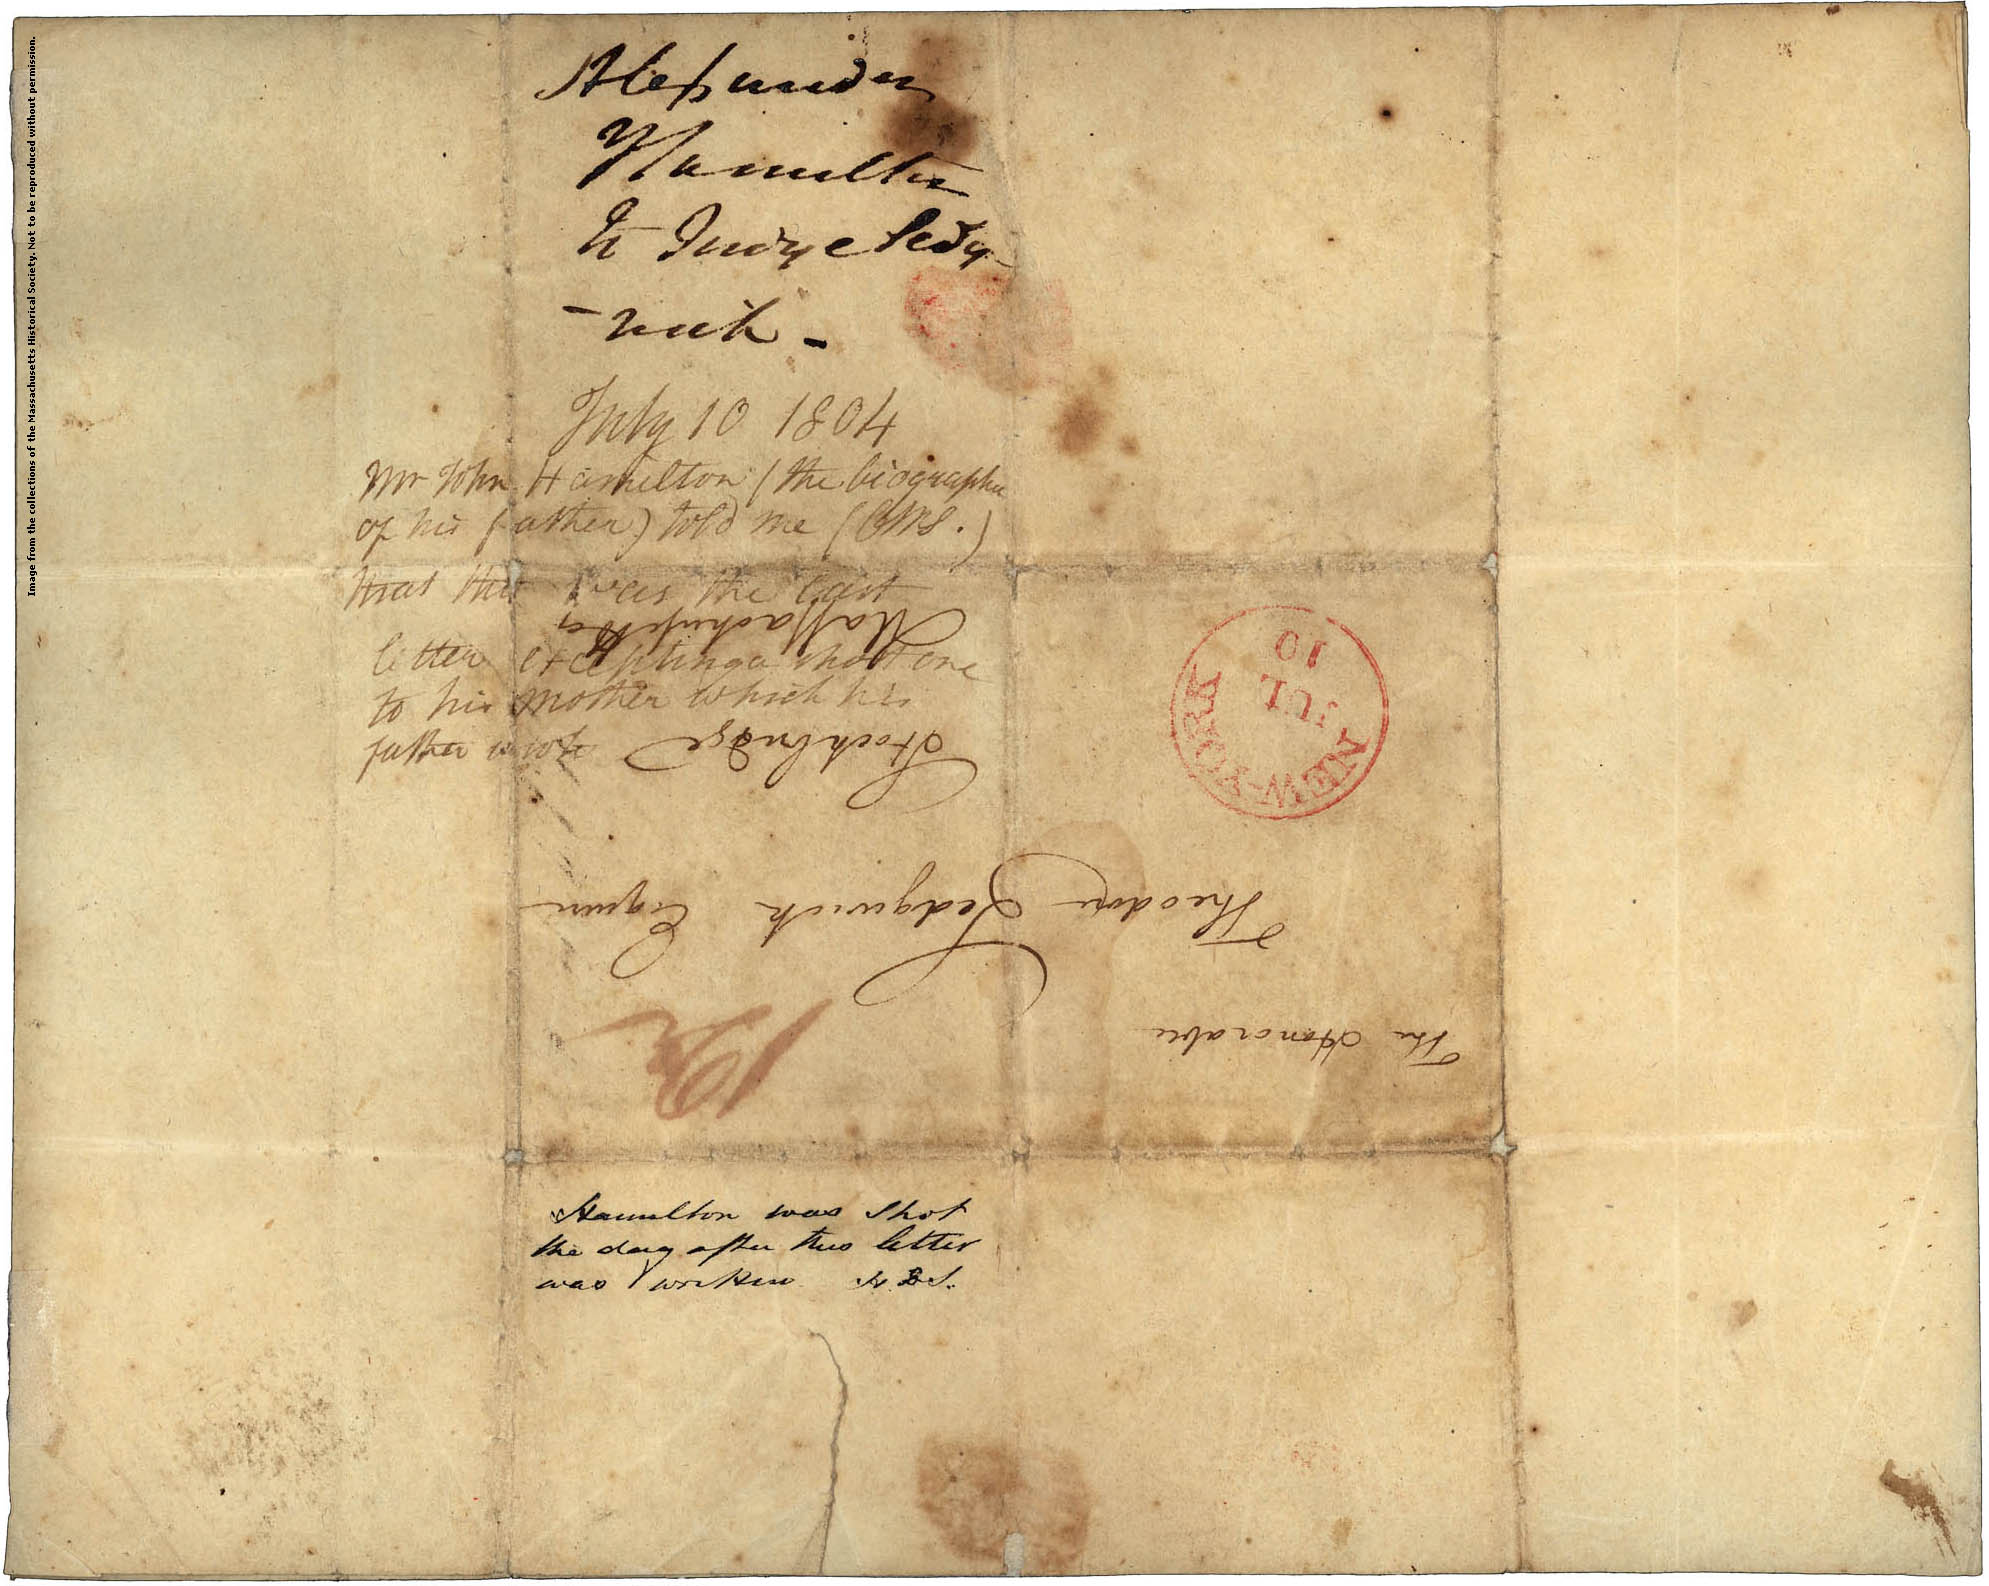 Image from the collections of the Massachusetts Historical Society. Not to be reproduced without permission.
Alexander
Hamilton
to Judge Sedg
-wick -
July 10 1804
Mr John Hamilton (the biographer
of his father) told me (CMS.)
that this was the last
letter excepting a short one
to his mother which his
father wrote
NEW-YORK
JUL
10
The Honorable
Theodore Sedgwick Esquire
Stockbridge
Massachusetts
Hamilton was shot
the day after this letter
was written H.D.S.